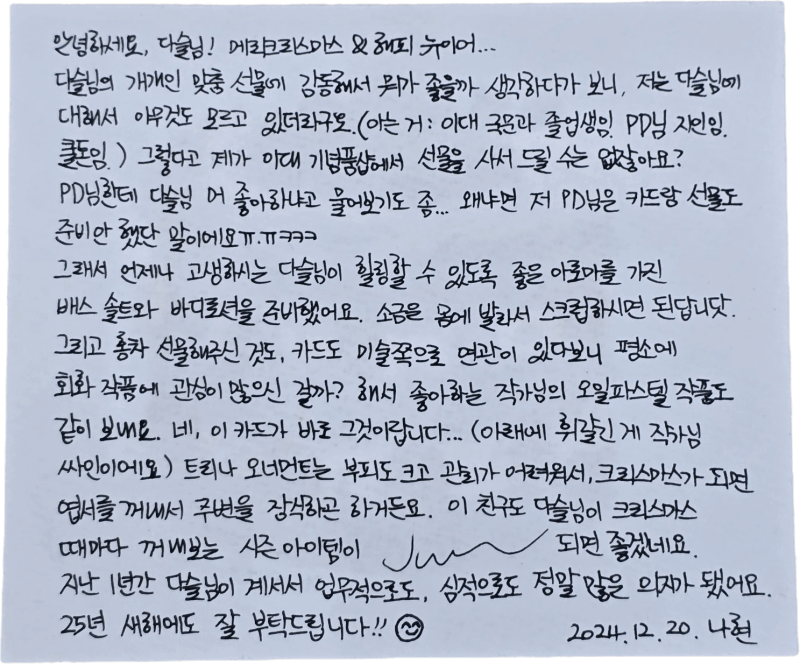 안녕하세요, 다슬님! 메리크리스마스 & 해피 뉴이어...
다슬님의 개개인 맞춤 선물에 감동해서 뭐가 좋을까 생각하다가 보니, 저는 다슬님에
대해서 아무것도 모르고 있더라구요.(아는 거 : 이대 국문과 졸업생임. PD님 지인임.
쿨톤임.) 그렇다고 제가 이대 기념품샵에서 선물을 사서 드릴 수는 없잖아요?
PD님한테 다슬님 머 좋아하냐고 물어보기도 좀... 왜냐면 저 PD님은 카드랑 선물도
준비 안 했단 말이에요ㅠ.ㅠㅋㅋㅋ
그래서 언제나 고생하시는 다슬님이 힐링할 수 있도록 좋은 아로마를 가진
배스 솔트와 바디로션을 준비했어요. 소금은 몸에 발라서 스크럽하시면 된답니닷.
그리고 홍차 선물해주신 것도, 카드도 미술쪽으로 연관이 있다보니 평소에
회화 작품에 관심이 많으신 걸까? 해서 좋아하는 작가님의 오일파스텔 작품도
같이 보내요. 네, 이 카드가 바로 그것이랍니다... (아래에 휘갈긴 게 작가님
싸인이에요) 트리나 오너먼트는 부피도 크고 관리가 어려워서, 크리스마스가 되면
엽서를 꺼내서 주변을 장식하곤 하거든요. 이 친구도 다슬님이 크리스마스
때마다 꺼내보는 시즌 아이템이 되면 좋겠네요.
지난 1년간 다슬님이 계셔서 업무적으로도, 심적으로도 정말 많은 의지가 됐어요.
25년 새해에도 잘 부탁드립니다!! 😊
2024.12.20. 나현